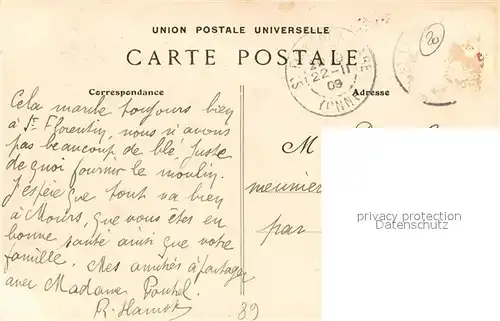 UNION POSTALE UNIVERSELLE
CARTE POSTALE
20
22-11
09
(YONNE)
Correspondance
Adresse
Cela marche toujours bien
à St Florentin, nous n'avons
pas beaucoup de blé. Juste
de quoi fournir le moulin.
J'espère que tout va bien
à Mours, que vous êtes en
bonne santé ainsi que votre
famille. Mes amitiés à partager
avec Madame
R.
M
meunier
par
privacy protection
Datenschutz
89